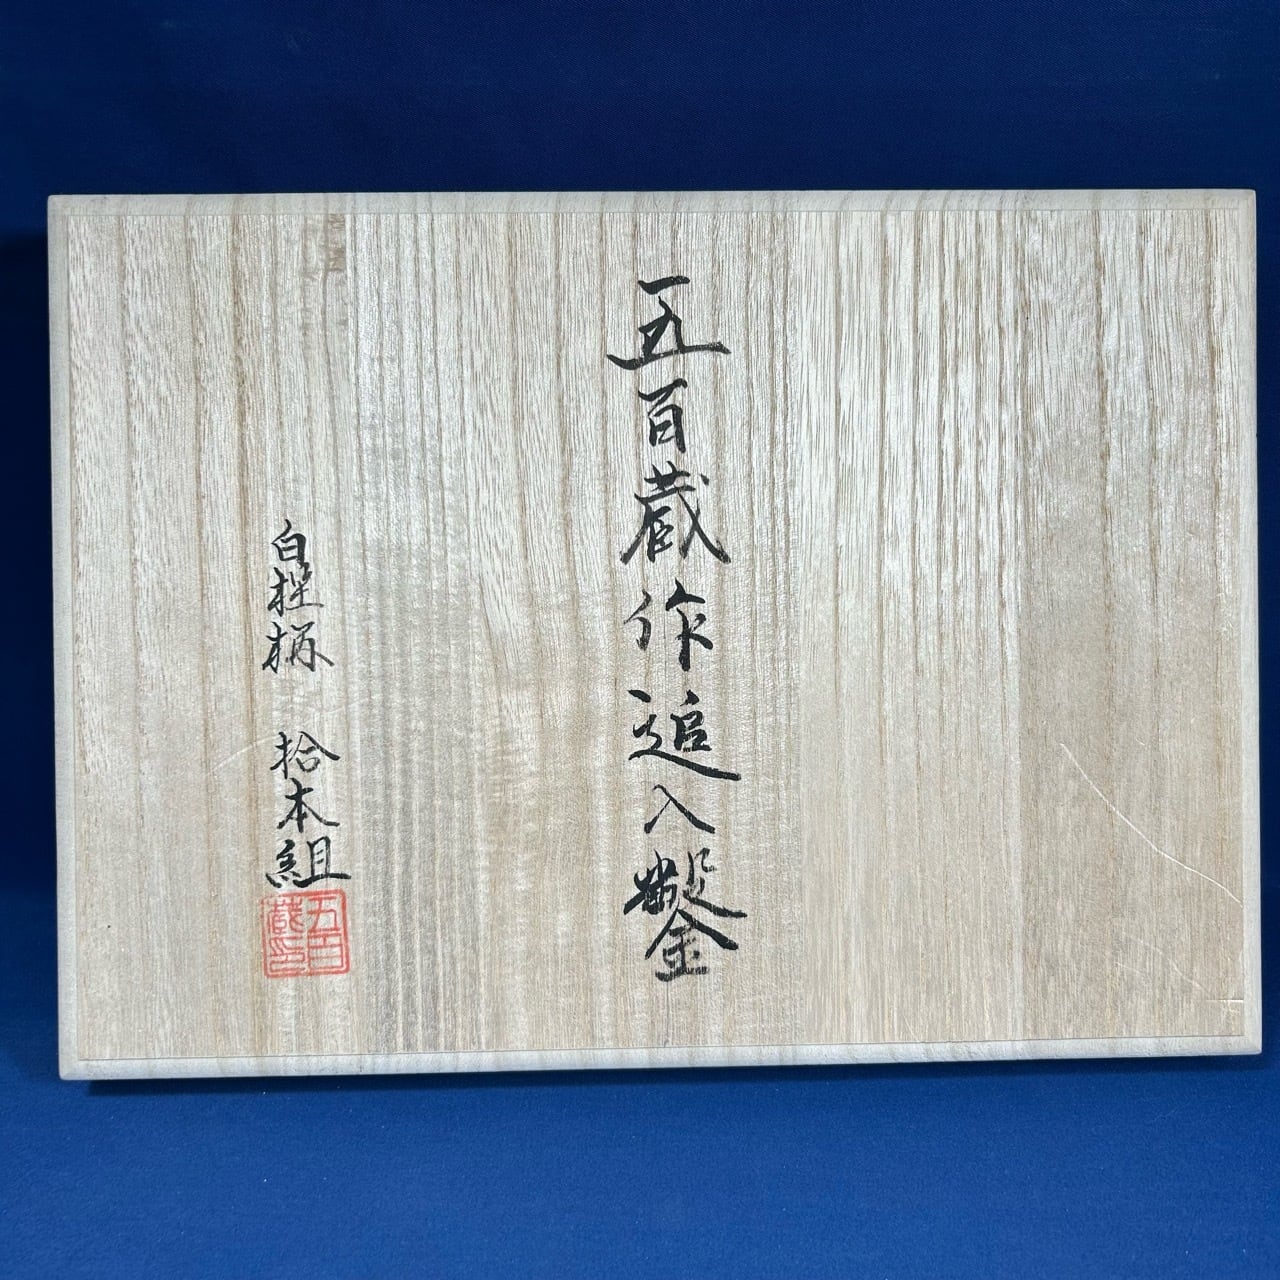 五百蔵作追入鑿
白樫柄 拾本組
五百
蔵印